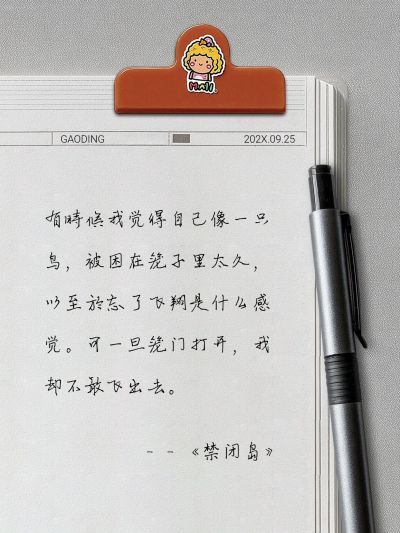 MALL
GAODING
202X.09.25
有時候我觉得自己像一只
鸟，被困在笼子里太久，
以至於忘了飞翔是什么感
觉。可一旦笼门打开，我
却不敢飞出去。
--《禁闭岛》